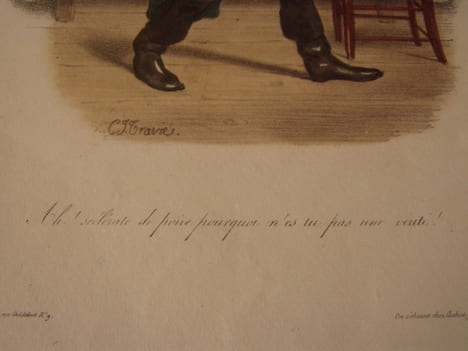 C.J. Traviès.
Ah ! scélérate de poire pourquoi n'es tu pas une vérité !
On s'abonne chez Aubert,